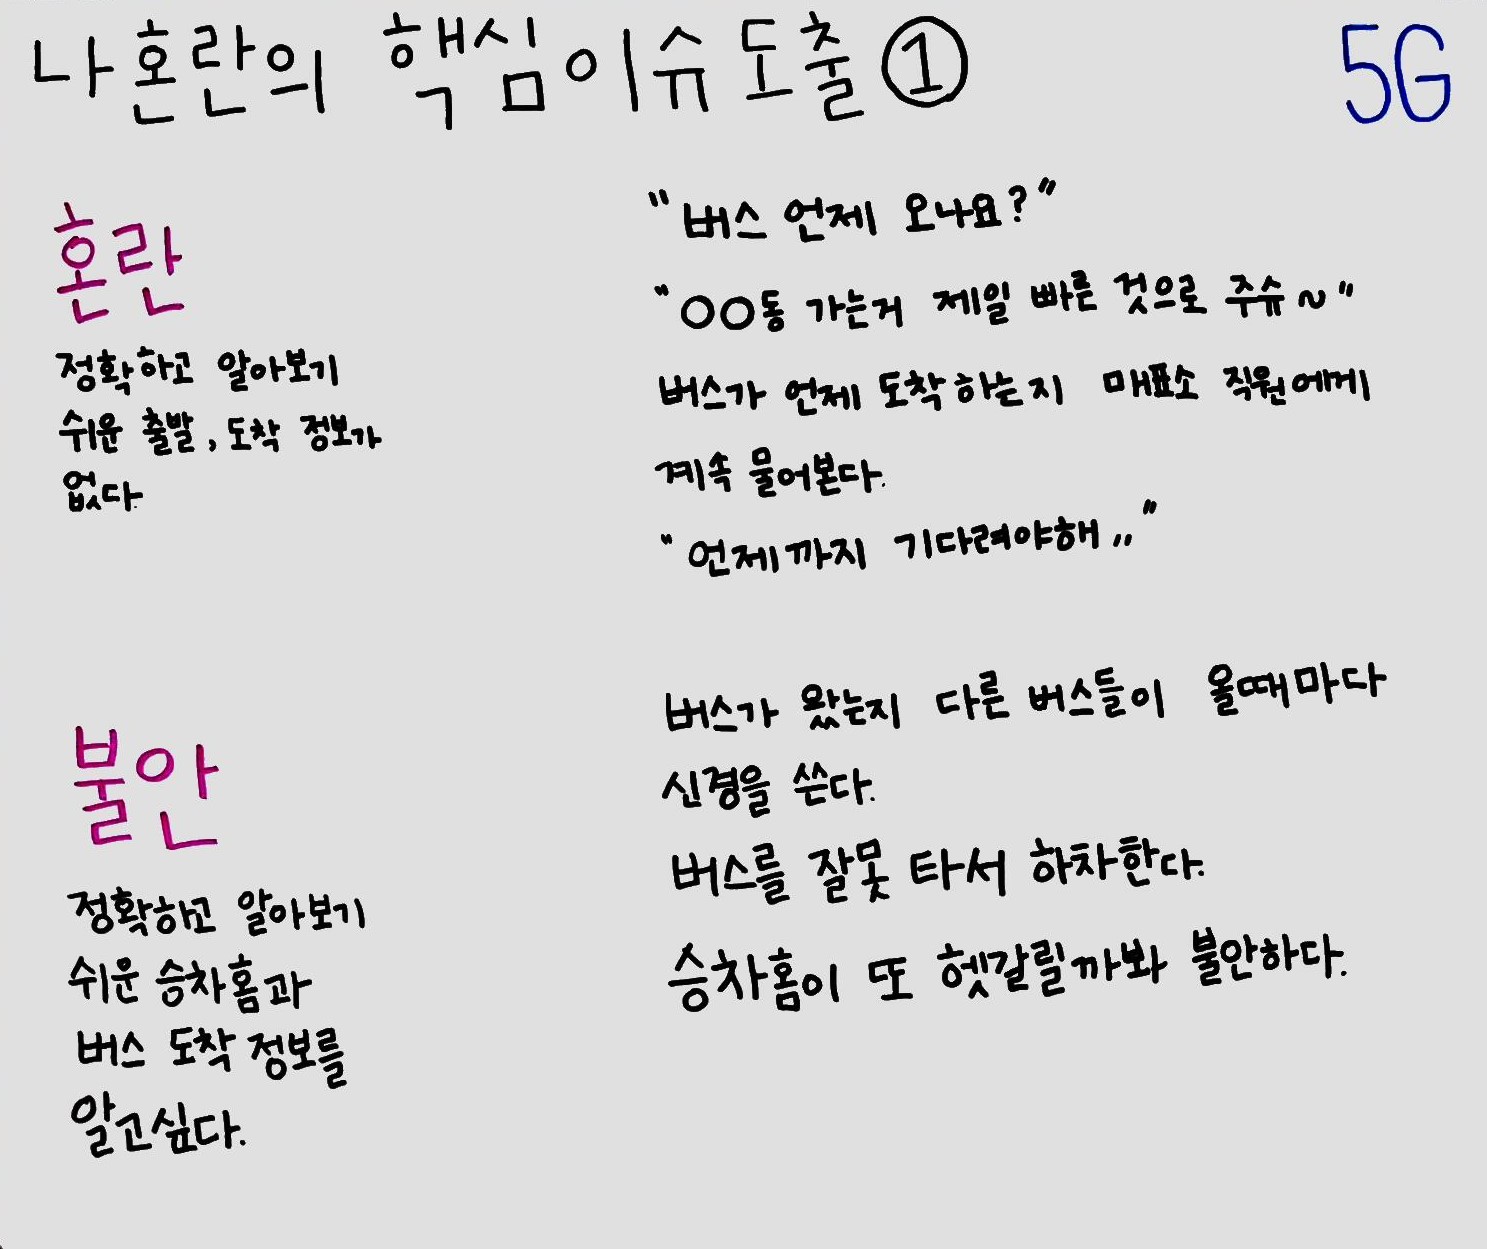 나혼란의 핵심이슈도출①
5G
혼란
정확하고 알아보기
쉬운 출발, 도착 정보가
없다.
"버스 언제 오나요?"
"○○동 가는거 제일 빠른 것으로 주슈~"
버스가 언제 도착하는지 매표소 직원에게
계속 물어본다.
"언제까지 기다려야해.."
불안
정확하고 알아보기
쉬운 승차홈과
버스 도착 정보를
알고싶다.
버스가 왔는지 다른 버스들이 올때마다
신경을 쓴다.
버스를 잘못 타서 하차한다.
승차홈이 또 헷갈릴까봐 불안하다.